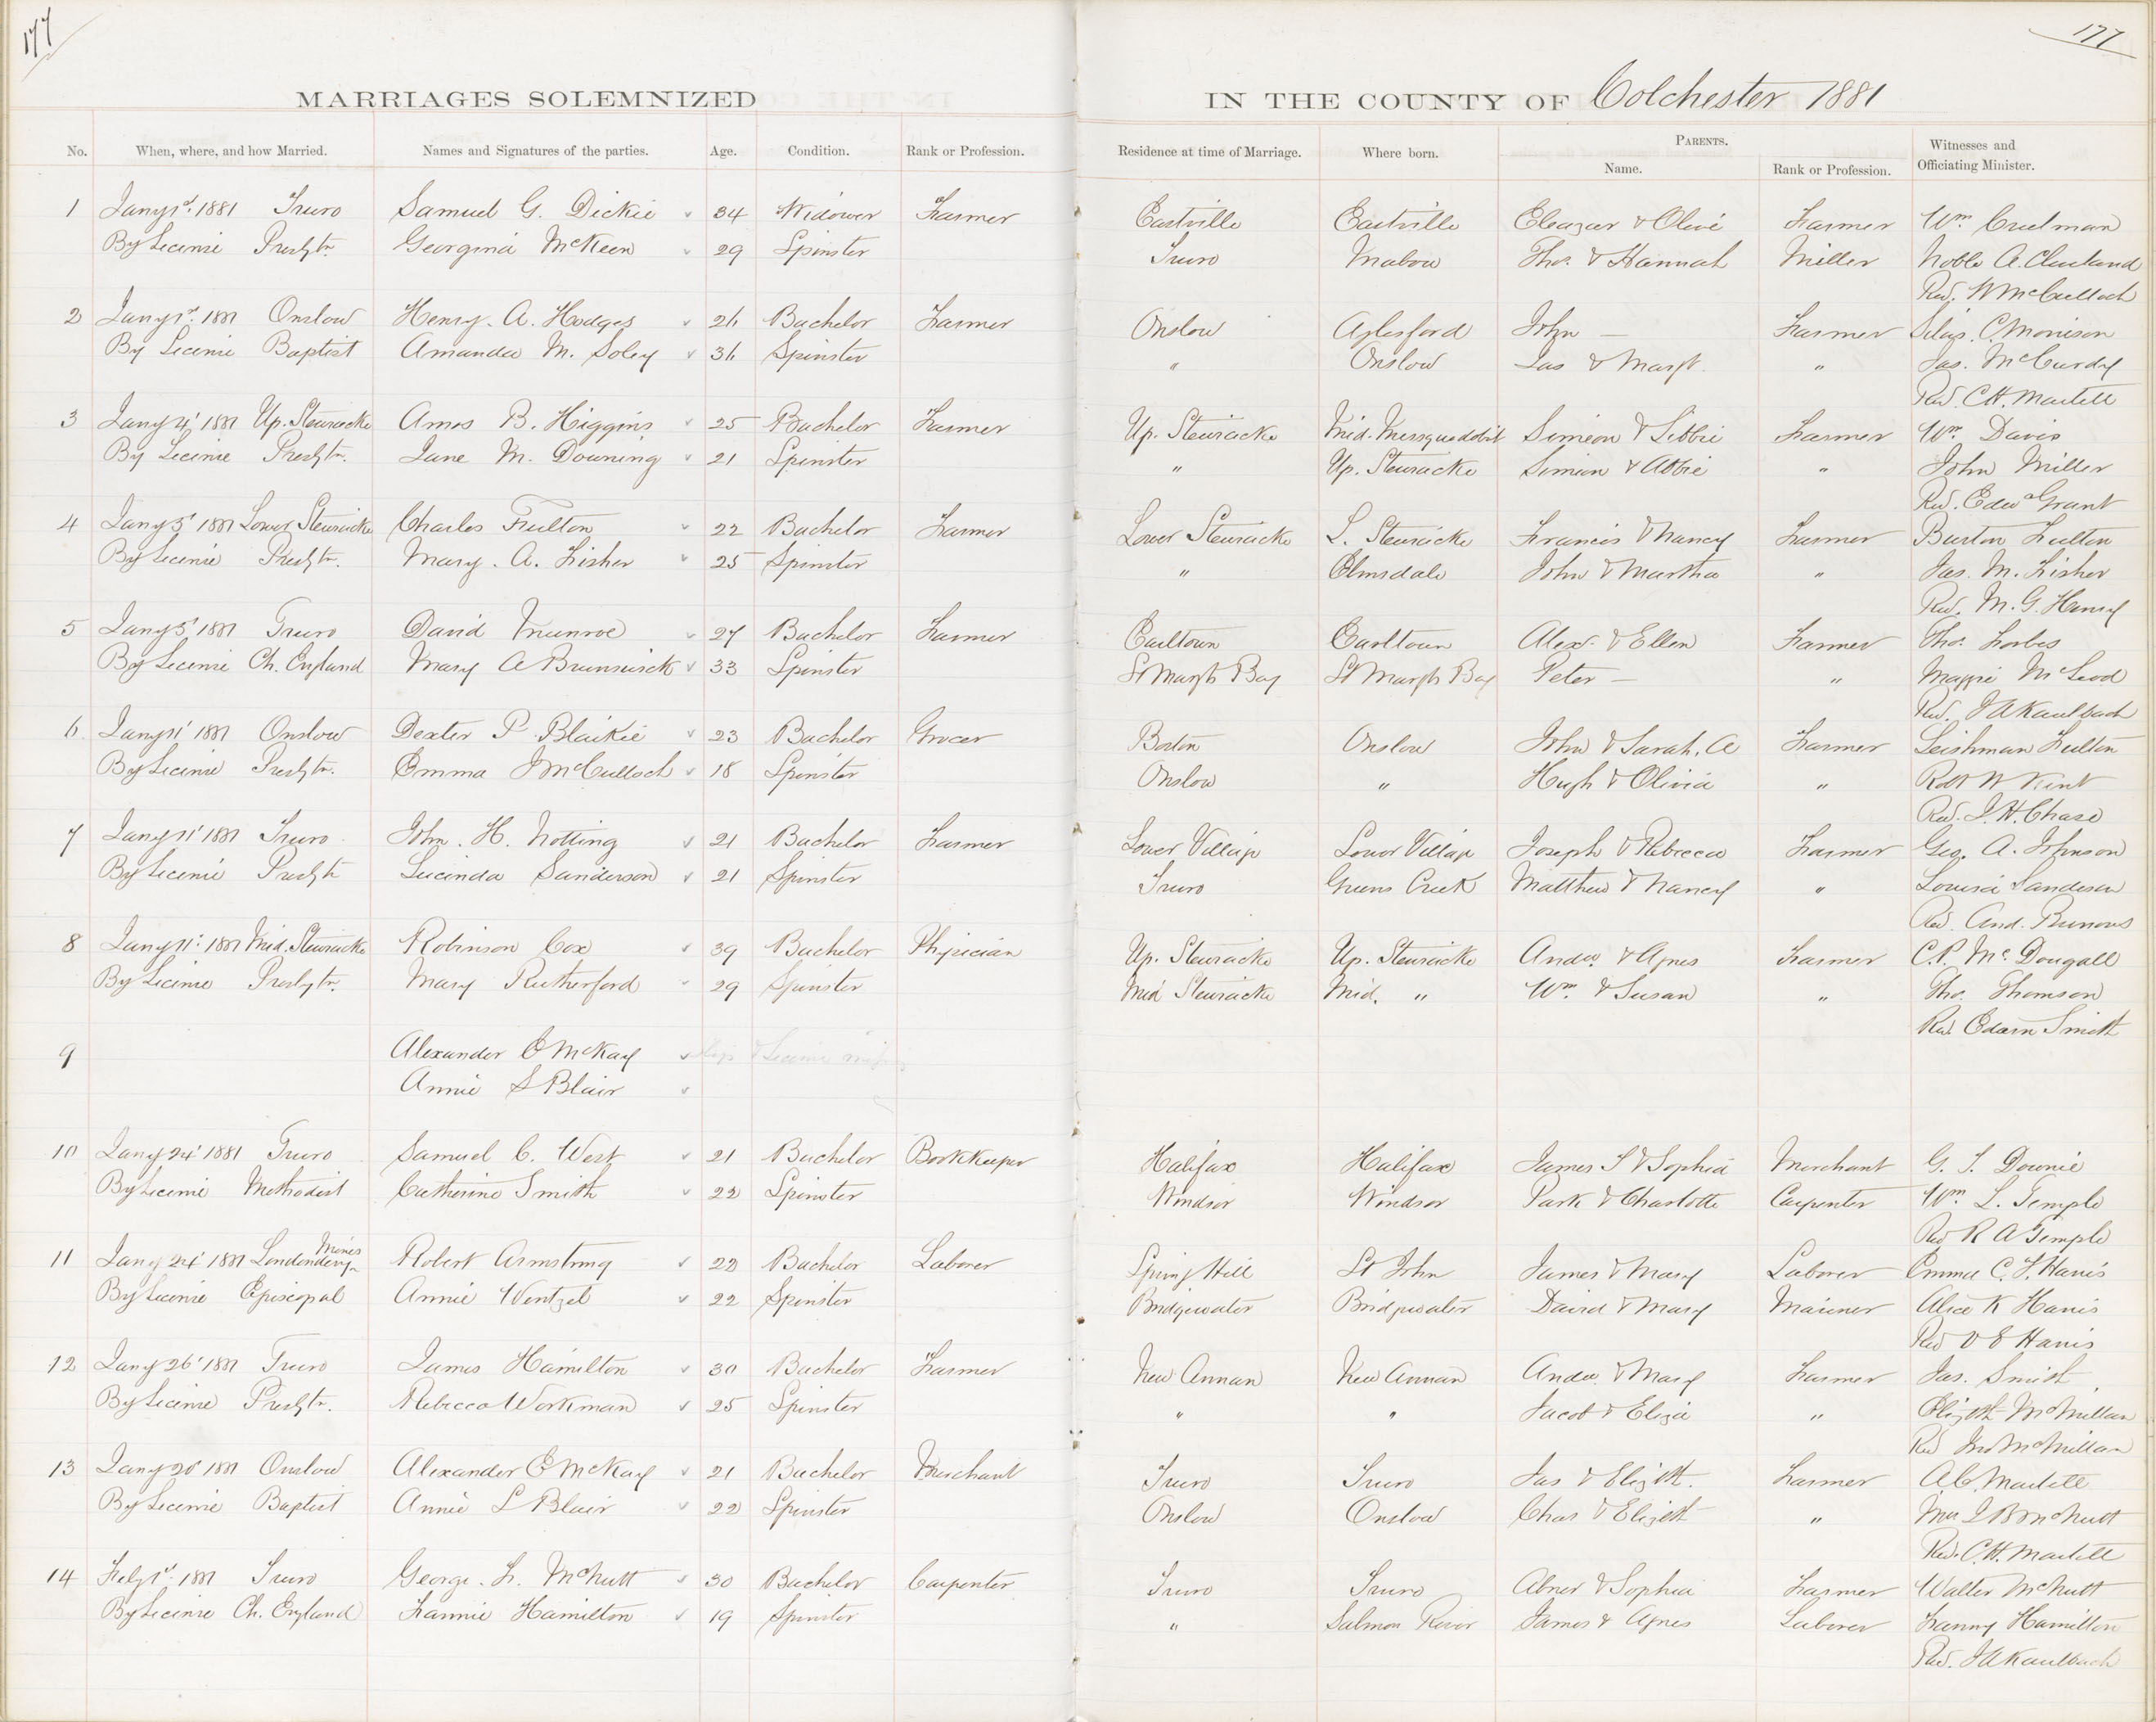 177
177
MARRIAGES SOLEMNIZED IN THE COUNTY OF Colchester 1881
No. When, where, and how Married. Names and Signatures of the parties. Age. Condition. Rank or Profession. Residence at time of Marriage. Where born. PARENTS. Name. Rank or Profession. Witnesses and Officiating Minister.
1 Jany 1st. 1881 Truro Samuel G. Dickie 34 Widower Farmer Eastville Eastville Eleazar & Olive Farmer Wm Creelman
By License Presbytn. Georgina McKeen 29 Spinster Truro Mabou Thos. & Hannah Miller Noble A. Cleveland
Rev. W McCulloch
2 Jany 1st. 1881 Onslow Henry. A. Hodges 26 Bachelor Farmer Onslow Aylesford John — Farmer Silas. C. Morrison
By License Baptist Amanda M. Soley 36 Spinster " Onslow Jas & Margt. " Jas. McCurdy
Rev. C.H. Martell
3 Jany 4' 1881 Up. Stewiacke Amos B. Higgins 25 Bachelor Farmer Up. Stewiacke Mid. Musquodobit Simeon & Libbie Farmer Wm. Davis
By License Presbytn. Jane M. Downing 21 Spinster " Up. Stewiacke Simeon & Abbie " John Miller
Rev. Edwd Grant
4 Jany 5' 1881 Lower Stewiacke Charles Fulton 22 Bachelor Farmer Lower Stewiacke L. Stewiacke Francis & Nancy Farmer Burton Fulton
By License Presbytn. Mary. A. Fisher 25 Spinster " Elmsdale John & Martha " Jas. M. Fisher
Rev. M. G. Henry
5 Jany 5' 1881 Truro David Munroe 27 Bachelor Farmer Earltown Earltown Alex. & Ellen Farmer Thos. Forbes
By License Ch. England Mary A Brunswick 33 Spinster St Margts Bay St Margts Bay Peter — " Maggie McLeod
Rev. J A Kaulbach
6 Jany 11' 1881 Onslow Dexter P. Blaikie 23 Bachelor Grocer Boston Onslow John & Sarah. A Farmer Leishman Fulton
By License Presbytn. Emma J McCulloch 18 Spinster Onslow " Hugh & Olivia " Robt W Kent
Rev. J. H. Chase
7 Jany 11' 1881 Truro John. H. Notting 21 Bachelor Farmer Lower Village Lower Village Joseph & Rebecca Farmer Geo. A. Johnson
By License Presbytn Lucinda Sanderson 21 Spinster Truro Greens Creek Matthew & Nancy " Louisa Sanderson
Rev. And. Burrows
8 Jany 11' 1881 Mid. Stewiacke Robinson Cox 39 Bachelor Physician Up. Stewiacke Up. Stewiacke Andw. & Agnes Farmer C.P. McDougall
By License Presbytn. Mary Rutherford 29 Spinster Mid Stewiacke Mid. " Wm. & Susan " Thos. Thomson
Rev Edwin Smith
9 Alexander E McKay & License
Annie S Blair
10 Jany 24' 1881 Truro Samuel C. West 21 Bachelor Bookkeeper Halifax Halifax James S & Sophia Merchant G. T. Downie
By License Methodist Catherine Smith 22 Spinster Windsor Windsor Park & Charlotte Carpenter Wm. L. Temple
Rev R A Temple
11 Jany 24' 1881 Londonderry Mines Robert Armstrong 22 Bachelor Laborer Spring Hill St John James & Mary Laborer Emma C. F. Harris
By License Episcopal Annie Wentzel 22 Spinster Bridgewater Bridgewater David & Mary Mariner Alice K Harris
Rev V E Harris
12 Jany 26' 1881 Truro James Hamilton 30 Bachelor Farmer New Annan New Annan Andw. & Mary Farmer Jas. Smith
By License Presbytn. Rebecca Workman 25 Spinster " " Jacob & Eliza " Elizbth McMillan
Rev Jno McMillan
13 Jany 20' 1881 Onslow Alexander E McKay 21 Bachelor Merchant Truro Truro Jas & Elizbth. Farmer A.C. Martell
By License Baptist Annie L Blair 22 Spinster Onslow Onslow Chas & Elizbth " Mrs I B McNutt
Rev. C.H. Martell
14 Feby 1st. 1881 Truro George. F. McNutt 30 Bachelor Carpenter Truro Truro Abner & Sophia Farmer Walter McNutt
By License Ch. England Fannie Hamilton 19 Spinster " Salmon River James & Agnes Laborer Fanny Hamilton
Rev. J A Kaulbach